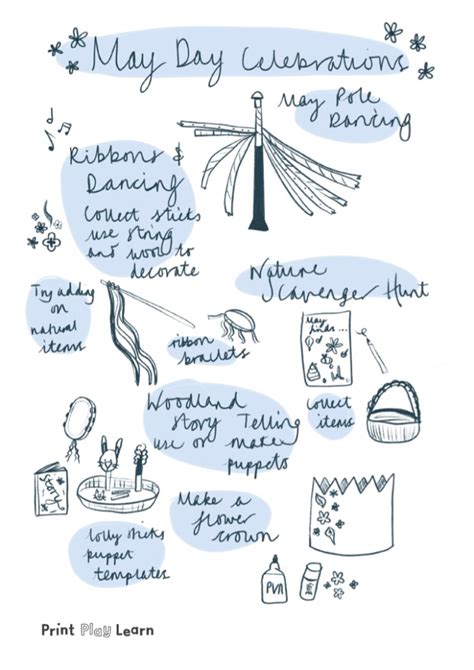 May Day Celebrations
May Pole
Dancing
Ribbons &
Dancing
Collect sticks
use string
and wool to
decorate
Nature
Scavenger Hunt
Try adding
on
natural
items
ribbon
braclets
May
finds...
Collect
items
Woodland
Story Telling
use or make
puppets
Story
Make a
flower
crown
lolly sticks
puppet
templates
PVA
Print Play Learn